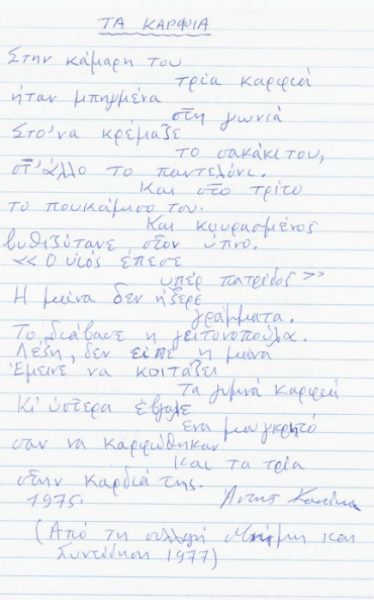 ΤΑ ΚΑΡΦΙΑ
Στην κάμαρη του
τρία καρφιά
ήταν μπηγμένα
στη γωνιά
Στο'να κρέμαζε
το σακάκι του,
στ'άλλο το παντελόνι.
Και στο τρίτο
το πουκάμισο του.
Και κουρασμένος
βυθιζότανε στον ύπνο.
<< Ο υιός έπεσε
υπέρ πατρίδος >>
Η μάνα δεν ήξερε
γράμματα.
Το διάβασε η γειτονοπούλα.
Λέξη, δεν είπε η μανά
Έμεινε να κοιτάζει
Τα γυμνά καρφιά
Κι' ύστερα έβγαλε
ένα μουγκρητό
σαν να καρφώθηκαν
Και τα τρία
στην καρδιά της.
1975.
(Από τη συλλογή Μνήμη και
Συνείδηση 1977)